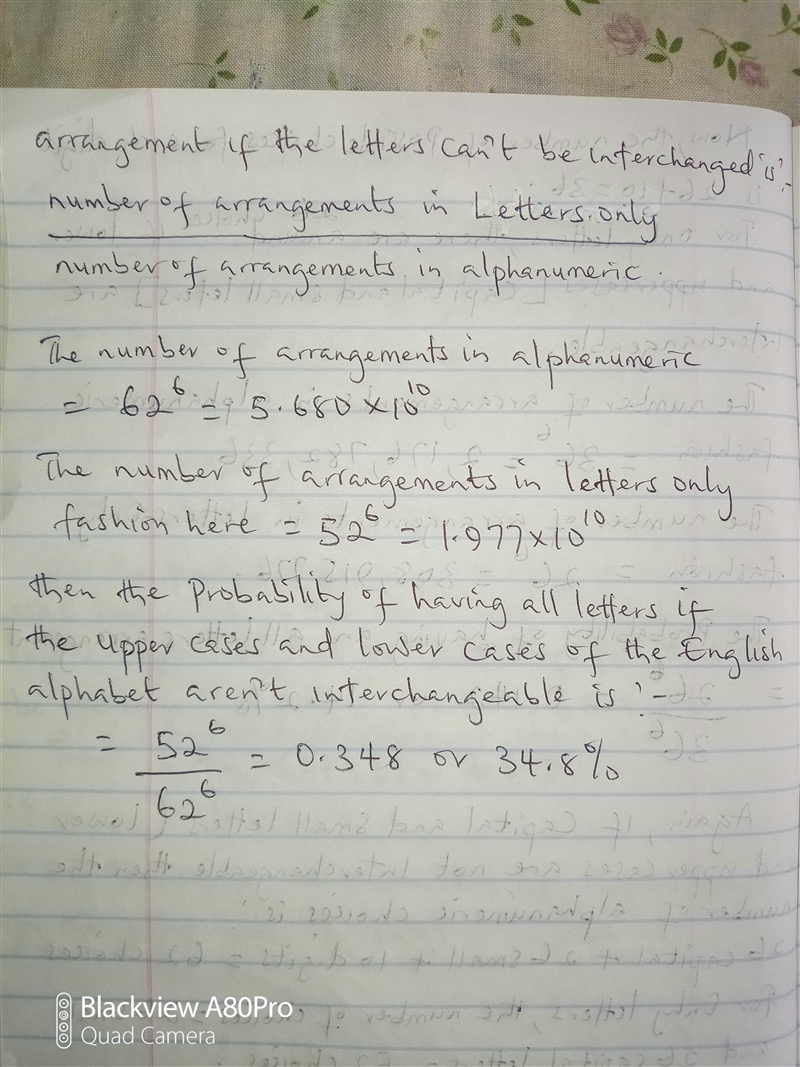 arrangement if the letters can't be interchanged is:-
number of arrangements in Letters only
number of arrangements in alphanumeric.
The number of arrangements in alphanumeric
= 62⁶ = 5.680 × 10¹⁰
The number of arrangements in letters only
fashion here = 52⁶ = 1.977 × 10¹⁰
then the Probability of having all letters if
the upper cases and lower cases of the English
alphabet aren't interchangeable is :-
= 52⁶ / 62⁶ = 0.348 or 34.8%
Blackview A80Pro
Quad Camera